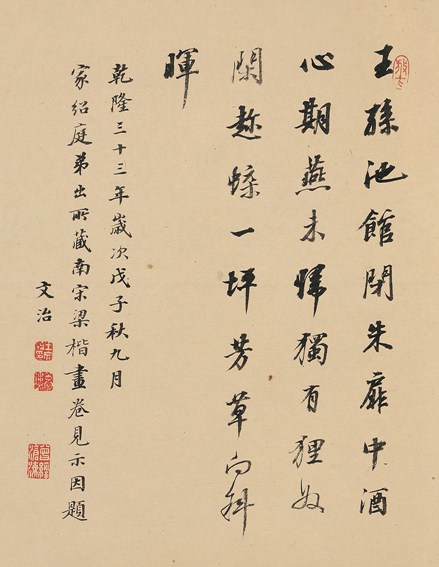 王孫池館閉朱扉中酒
心期燕未歸獨有狸奴
閑趂蝶一坪芳草向斜
暉
乾隆三十三年歲次戊子秋九月
家紹庭弟出所藏南宋梁楷畫卷見示因題
文治